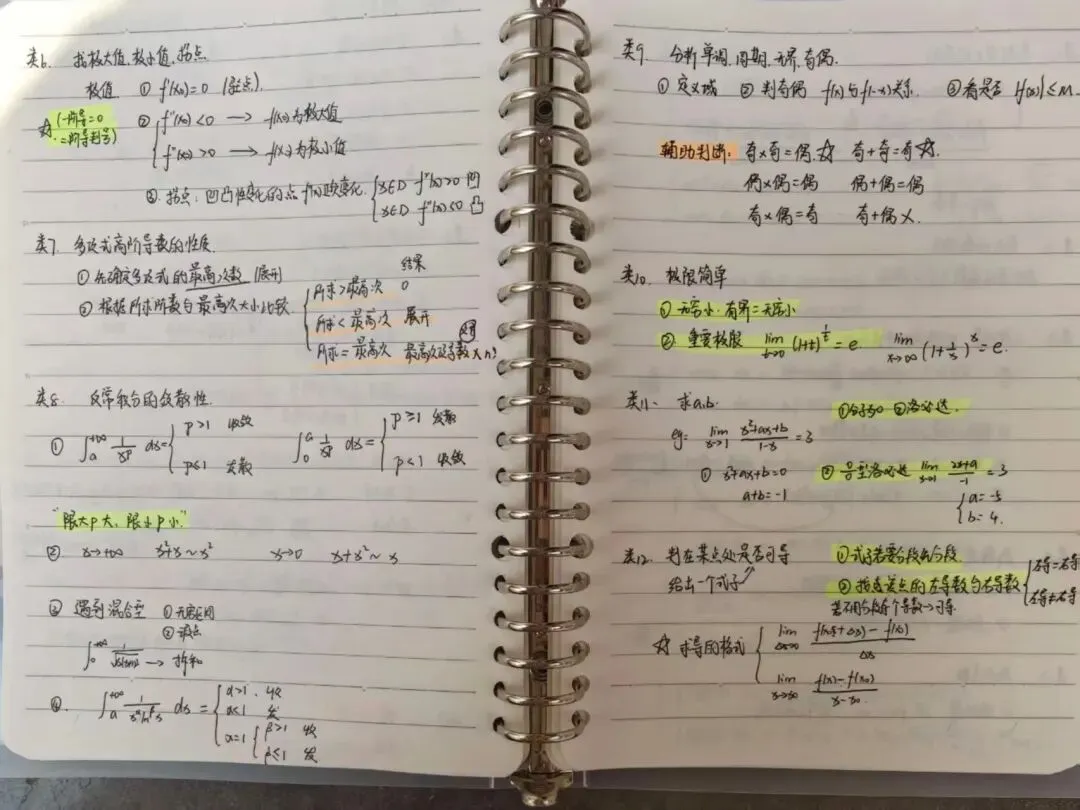 类6. 找极大值、极小值、拐点
极值 ① f'(x₀)=0 (驻点).
☆ (一阶导=0 二阶导判号)
② { f''(x₀)<0 → f(x₀)为极大值
f''(x₀)>0 → f(x₀)为极小值
③. 拐点: 凹凸性变化的点 { x∈D f''(x)>0 凹
x∈D f''(x)<0 凸
类7. 多项式高阶导数的性质.
① 先确定多项式的最高次数 (展开)
结果
② 根据所求阶数与最高次大小比较 { 所求>最高次 0
所求<最高次 展开
所求=最高次 最高次系数×n!
类8. 反常积分的敛散性.
① ∫ₐ^{+∞} 1/x^p dx = { p>1 收敛
p≤1 发散
∫₀^a 1/x^p dx = { p≥1 发散
p<1 收敛
"限大p大、限小p小"
② x→+∞ x²+x~x² x→0 x+x²~x
③ 遇到混合型 ① 无穷区间
② 瑕点
→ 拆和
④. ∫ₐ^{+∞} 1/(x^α ln^β x) dx = { α>1 . 收
α<1 发
α=1 { β>1 收
β≤1 发
类9. 分析单调、周期、无界、奇偶.
① 定义域 ② 判奇偶 f(x)与f(-x)关系. ③ 看是否 |f(x)|≤M.
辅助判断: 奇×奇=偶.☆ 奇+奇=奇☆.
偶×偶=偶 偶+偶=偶
奇×偶=奇 奇+偶 ×.
类10. 极限简单
① 无穷小·有界=无穷小
② 重要极限 lim_{t→0} (1+t)^{1/t} = e. lim_{x→∞} (1+1/x)^x = e.
类11、 求a,b. ① 分子为0 ② 洛必达.
eg: lim_{x→1} (x²+ax+b)/(1-x) = 3
① x²+ax+b=0
a+b=-1
② 0/0型洛必达 lim_{x→1} (2x+a)/(-1) = 3
{ a=-5
b=4.
类12. 判在某点处是否可导
给出一个式子
① 式子若要分段先分段
② 找这差点的左导数与右导数 { 左导=右导
左导≠右导
若不用分段有个导数→可导
☆ 求导的格式 { lim_{Δx→0} (f(x+Δx)-f(x))/Δx
lim_{x→x₀} (f(x)-f(x₀))/(x-x₀)